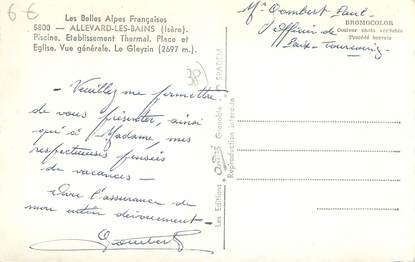 6€
Les Belles Alpes Françaises
5800 - ALLEVARD-LES-BAINS (Isère).
Piscine. Etablissement Thermal. Place et
Eglise. Vue générale. Le Gleyzin (2697 m.).
38
Veuillez me permettre
de vous présenter, ainsi
qu'à Madame, mes
respectueuses pensées
de vacances -
Avec l'assurance de
mon entier dévouement -
Gombert
Mr Gombert Paul
Officier de
Paix - Tourcoing
BROMOCOLOR
Couleur photo véritable
Procédé breveté
Les Editions André Grenoble - SPADEM
Reproduction interdite